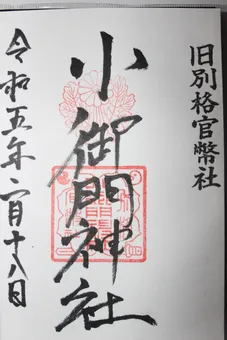 旧別格官幣社
小御門神社
令和五年二月十八日